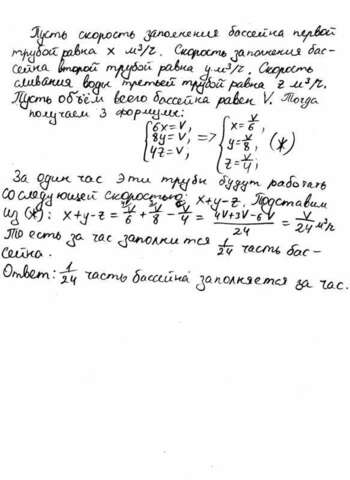 Пусть скорость заполнения бассейна первой
трубой равна x м³/г. Скорость заполнения бас-
сейна второй трубой равна y м³/г. Скорость
сливания воды третьей трубой равна z м³/г.
Пусть объём всего бассейна равен V. Тогда
получаем 3 формулы:
{6x=V, 8y=V, 4z=V, => {x=V/6, y=V/8, z=V/4, (*)
За один час эти трубы будут работать
со следующей скоростью: x+y-z. Подставим
из (*): x+y-z = V/6 + V/8 - V/4 = (4V+3V-6V)/24 = V/24 м³/г
То есть за час заполнится 1/24 часть бас-
сейна.
Ответ: 1/24 часть бассейна заполняется за час.